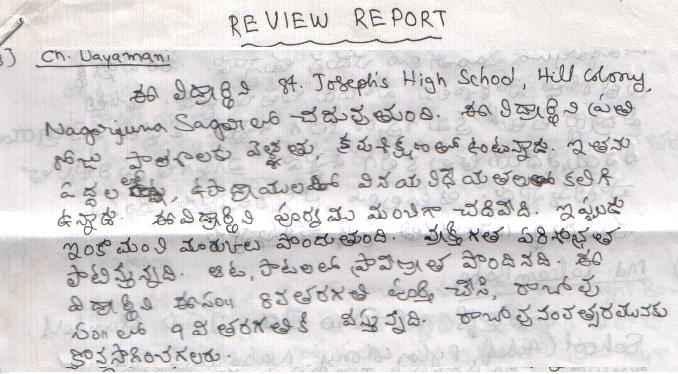 REVIEW REPORT
) Ch. Uayamani
ఈ విద్యార్థిని St. Joseph's High School, Hill Colony,
Nagarjuna Sagarలో చదువుతుంది. ఈ విద్యార్థిని ప్రతి
రోజు పాఠశాలకు వెళ్ళుతు, క్రమశిక్షణలో ఉంటున్నాడు. ఇతను
పెద్దల ఉపాధ్యాయులతో వినయ విధేయతలు కలిగి
ఉన్నాడు. ఈ విద్యార్థిని పూర్వము మంచిగా చదివేది. ఇప్పుడు
ఇంకా మంచి మార్కులు పొందుతుంది. వ్యక్తిగత పరిశుభ్రత
పాటిస్తున్నది. ఆట, పాటలలో ప్రావీణ్యత పొందినది. ఈ
విద్యార్థిని ఈ సం॥ 8వ తరగతి పూర్తి చేసి, రాబోవు
సం॥లో 9వ తరగతికి వస్తున్నది. రాబోవు సంవత్సరమునకు
కొనసాగించగలరు.